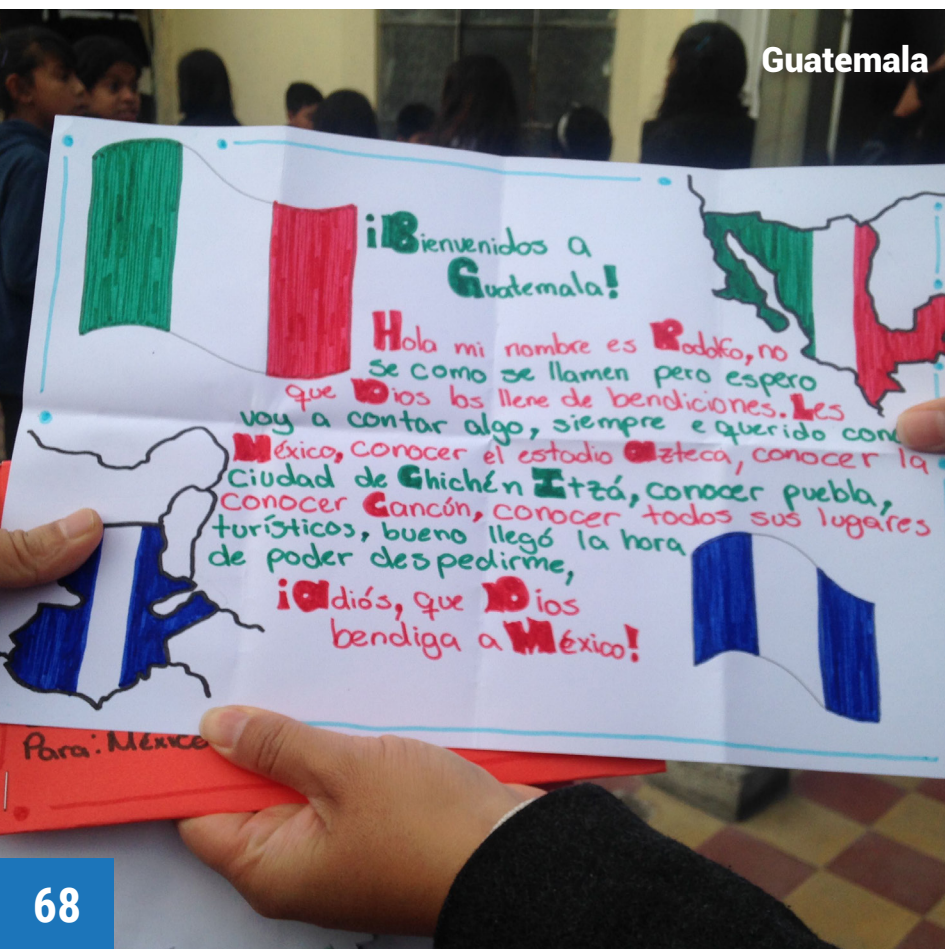 Guatemala
¡Bienvenidos a
Guatemala!
Hola mi nombre es Rodolfo, no
se como se llamen pero espero
que Dios los llene de bendiciones. Les
voy a contar algo, siempre e querido con
México, conocer el estadio azteca, conocer la
Ciudad de Chichén Itzá, conocer puebla,
conocer Cancón, conocer todos sus lugares
turísticos, bueno llegó la hora
de poder despedirme,
¡adiós, que Dios
bendiga a México!
Para: México
68